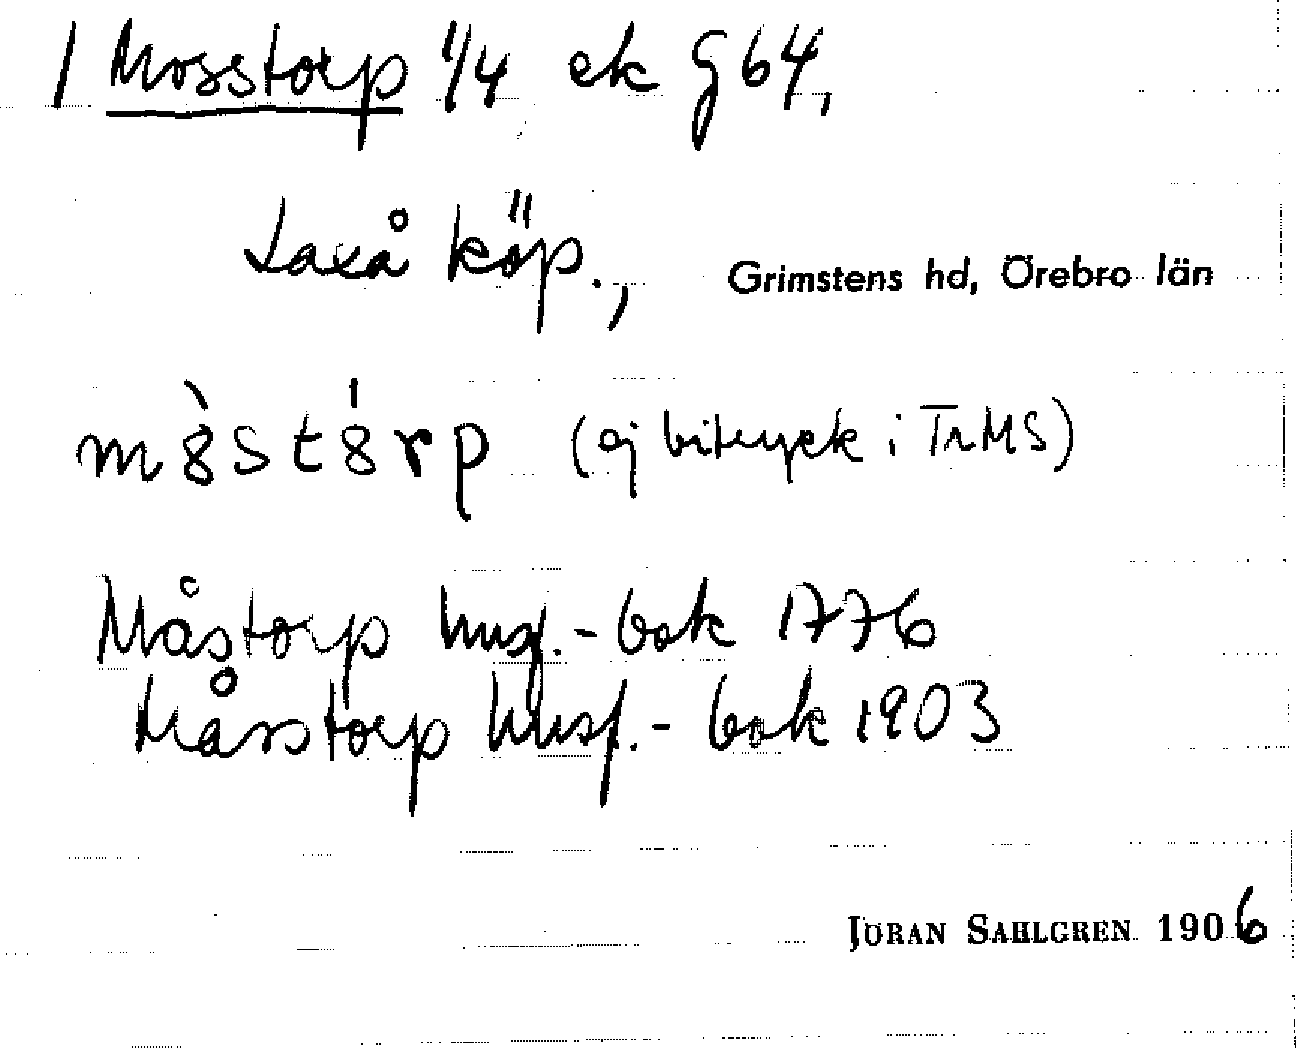 1 Mosstorp 1/4 ek G 64,
Laxå köp., Grimstens hd, Örebro län
m8̀st8́rp (ej bitryck i TrMS)
Måstorp husf.-bok 1776
Mårstorp husf.-bok 1903
JÖRAN SAHLGREN 1906